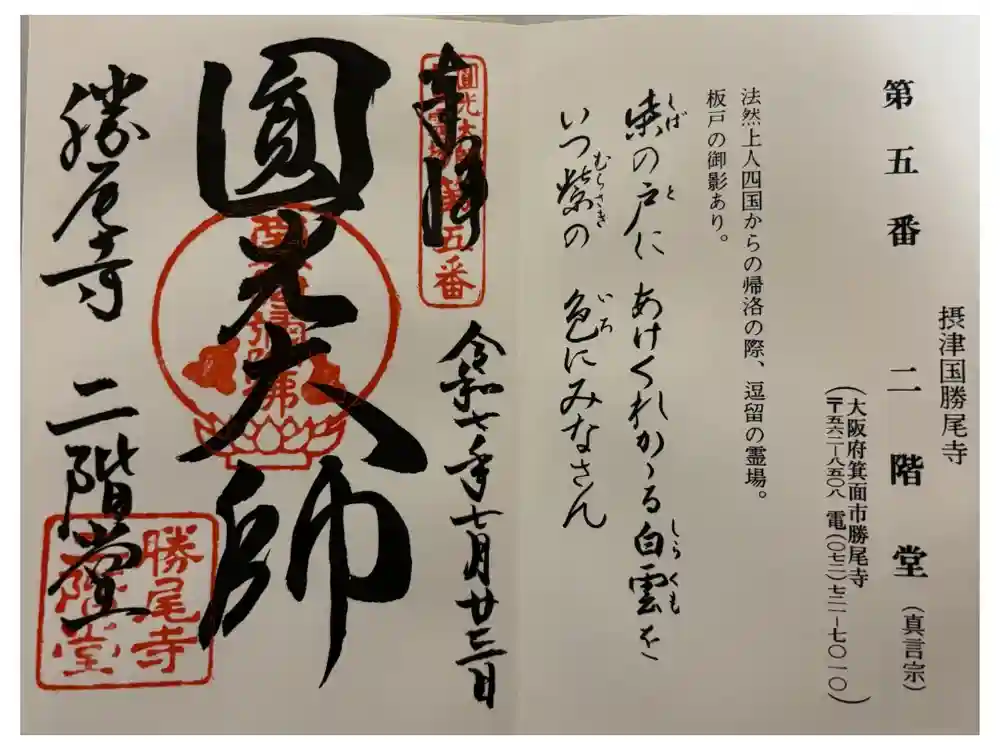 摂津国勝尾寺
第五番 二階堂(真言宗)
(大阪府箕面市勝尾寺
〒五六二-八五〇八 電(〇七二)七二一-七〇一〇)
法然上人四国からの帰洛の際、逗留の霊場。
板戸の御影あり。
柴の戸に あけくれかゝる白雲を
しば と しらくも
いつ紫の 色にみなさん
むらさき いろ
奉拝
圓光大師
第五番
令和七年七月廿三日
圓光大師
勝尾寺 二階堂
勝尾寺
二階堂